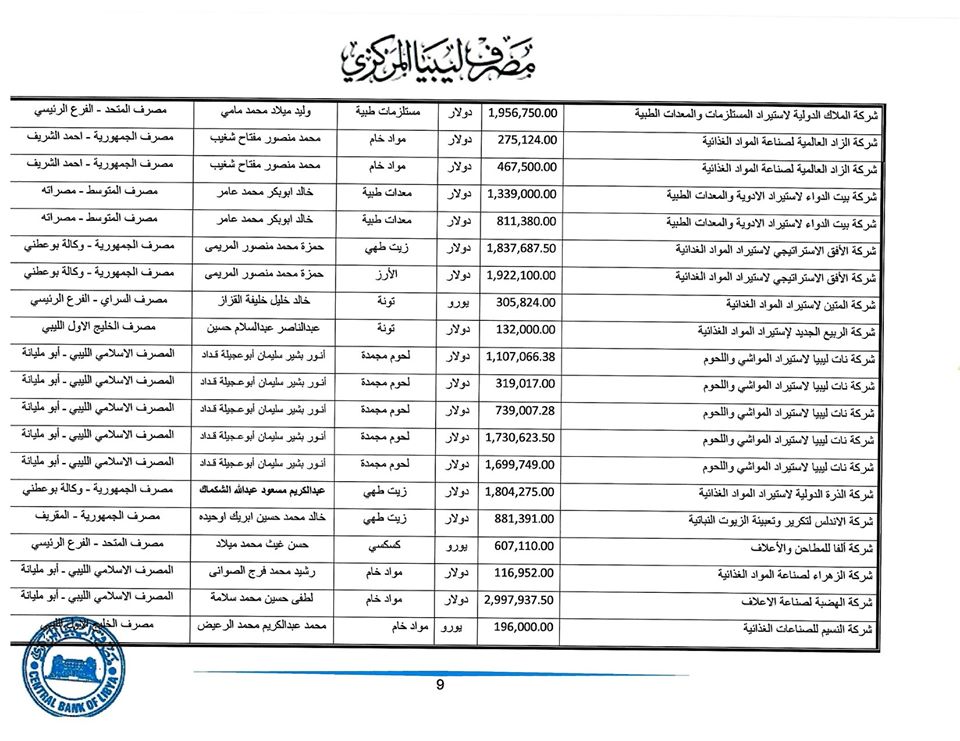 مصرف ليبيا المركزي
شركة الملاك الدولية لاستيراد المستلزمات والمعدات الطبية 1,956,750.00 دولار مستلزمات طبية وليد ميلاد محمد مامي مصرف المتحد - الفرع الرئيسي
شركة الزاد العالمية لصناعة المواد الغذائية 275,124.00 دولار مواد خام محمد منصور مفتاح شغيب مصرف الجمهورية - احمد الشريف
شركة الزاد العالمية لصناعة المواد الغذائية 467,500.00 دولار مواد خام محمد منصور مفتاح شغيب مصرف الجمهورية - احمد الشريف
شركة بيت الدواء لاستيراد الادوية والمعدات الطبية 1,339,000.00 دولار معدات طبية خالد ابوبكر محمد عامر مصرف المتوسط - مصراته
شركة بيت الدواء لاستيراد الادوية والمعدات الطبية 811,380.00 دولار معدات طبية خالد ابوبكر محمد عامر مصرف المتوسط - مصراته
شركة الأفق الاستراتيجي لاستيراد المواد الغدائية 1,837,687.50 دولار زيت طهي حمزة محمد منصور المريمى مصرف الجمهورية - وكالة بوعطني
شركة الأفق الاستراتيجي لاستيراد المواد الغدائية 1,922,100.00 دولار الأرز حمزة محمد منصور المريمى مصرف الجمهورية - وكالة بوعطني
شركة المتين لاستيراد المواد الغدائية 305,824.00 يورو تونة خالد خليل خليفة القزاز مصرف السراي - الفرع الرئيسي
شركة الربيع الجديد لإستيراد المواد الغذائية 132,000.00 دولار تونة عبدالناصر عبدالسلام حسين مصرف الخليج الاول الليبي
شركة نات ليبيا لاستيراد المواشي واللحوم 1,107,066.38 دولار لحوم مجمدة أنور بشير سليمان أبوعجيلة قداد المصرف الاسلامي الليبي - أبو مليانة
شركة نات ليبيا لاستيراد المواشي واللحوم 319,017.00 دولار لحوم مجمدة أنور بشير سليمان أبوعجيلة قداد المصرف الاسلامي الليبي - أبو مليانة
شركة نات ليبيا لاستيراد المواشي واللحوم 739,007.28 دولار لحوم مجمدة أنور بشير سليمان أبوعجيلة قداد المصرف الاسلامي الليبي - أبو مليانة
شركة نات ليبيا لاستيراد المواشي واللحوم 1,730,623.50 دولار لحوم مجمدة أنور بشير سليمان أبوعجيلة قداد المصرف الاسلامي الليبي - أبو مليانة
شركة نات ليبيا لاستيراد المواشي واللحوم 1,699,749.00 دولار لحوم مجمدة أنور بشير سليمان أبوعجيلة قداد المصرف الاسلامي الليبي - أبو مليانة
شركة الذرة الدولية لاستيراد المواد الغذائية 1,804,275.00 دولار زيت طهي عبدالكريم مسعود عبدالله الشكماك مصرف الجمهورية - وكالة بوعطني
شركة الاندلس لتكرير وتعبيئة الزيوت النباتية 881,391.00 دولار زيت طهي خالد محمد حسين ابريك اوحيده مصرف الجمهورية - المقريف
شركة ألفا للمطاحن والأعلاف 607,110.00 يورو كسكسي حسن غيث محمد ميلاد مصرف المتحد - الفرع الرئيسي
شركة الزهراء لصناعة المواد الغذائية 116,952.00 دولار مواد خام رشيد محمد فرج الصوانى المصرف الاسلامي الليبي - أبو مليانة
شركة الهضبة لصناعة الاعلاف 2,997,937.50 دولار مواد خام لطفى حسين محمد سلامة المصرف الاسلامي الليبي - أبو مليانة
شركة النسيم للصناعات الغذائية 196,000.00 يورو مواد خام محمد عبدالكريم محمد الرعيض مصرف الخليج الاول الليبي
CENTRAL BANK OF LIBYA
9